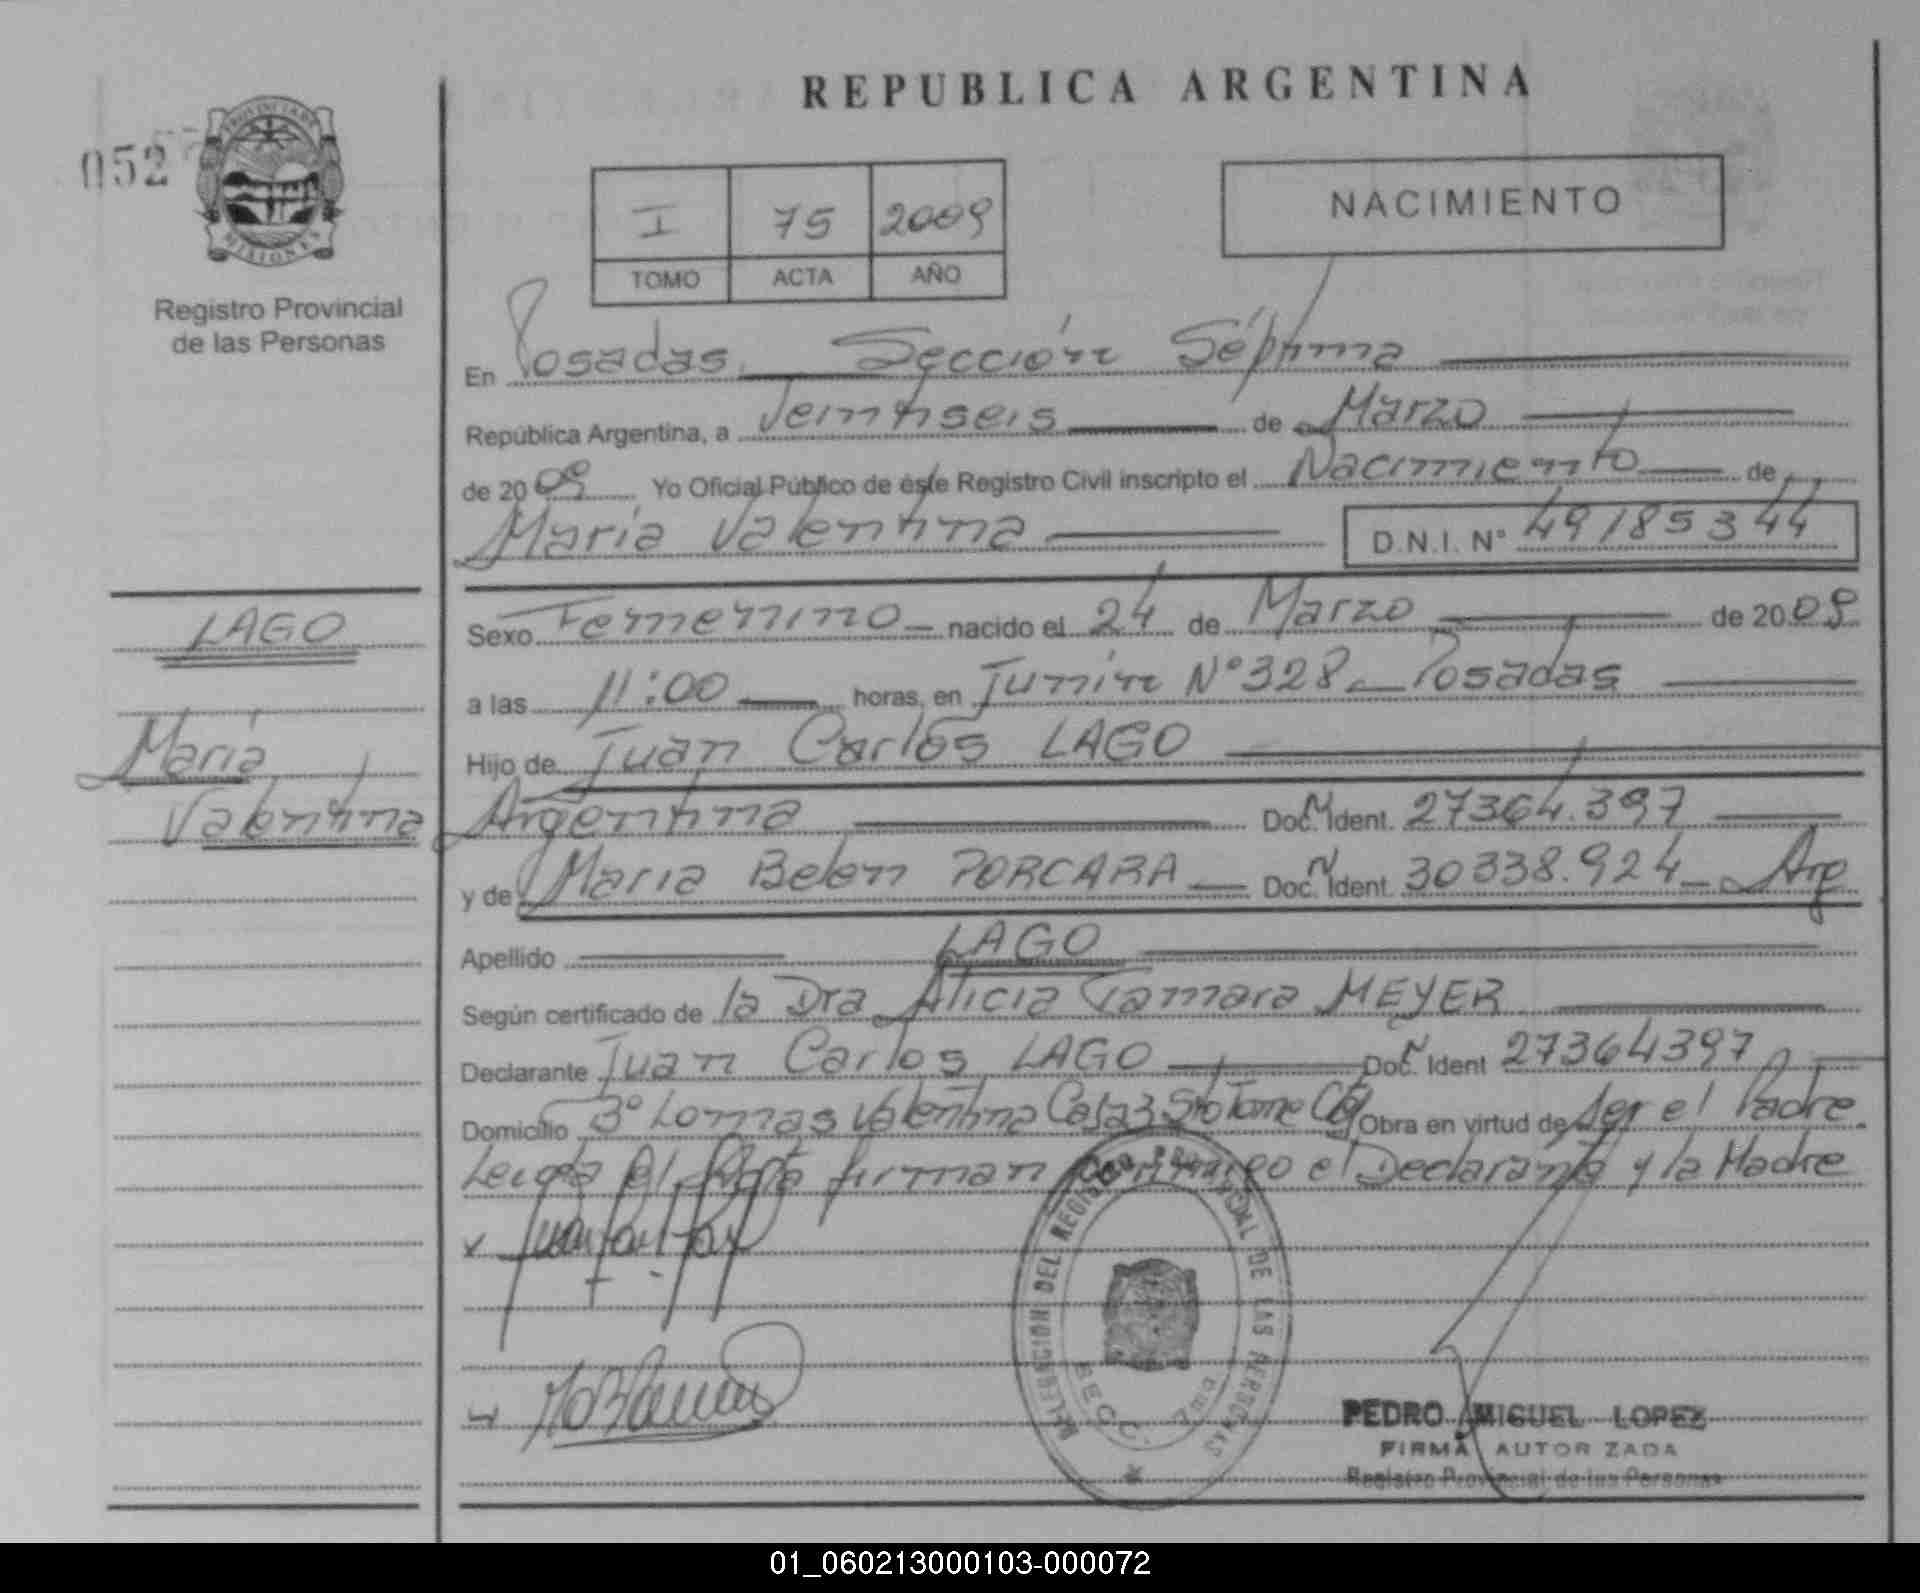 REPUBLICA ARGENTINA
052
PROVINCIA DE MISIONES
Registro Provincial
de las Personas
I 75 2009
TOMO ACTA AÑO
NACIMIENTO
En Posadas, Sección Séptima
República Argentina, a Veintiseis de Marzo
de 2009 Yo Oficial Público de éste Registro Civil inscripto el Nacimiento de
María Valentina D.N.I. N° 49185344
LAGO
María
Valentina
Sexo Femenino nacido el 24 de Marzo de 2009
a las 11:00 horas, en Junín N° 328 Posadas
Hijo de Juan Carlos LAGO
Argentina Doc. Ident. 27364.397
y de María Belén PORCARA Doc. Ident. 30338.924 Arg
Apellido LAGO
Según certificado de la Dra Alicia Tamara MEYER
Declarante Juan Carlos LAGO Doc. Ident 27364397
Domicilio B° Lomas Valentina Casa 3 Sto Tome Obra en virtud de ser el Padre
Leida el Acta firman conmigo el Declarante y la Madre
DELEGACION DEL REGISTRO PROVINCIAL DE LAS PERSONAS
SECC. 7ma
PEDRO MIGUEL LOPEZ
FIRMA AUTORIZADA
Registro Provincial de las Personas
01_060213000103-000072